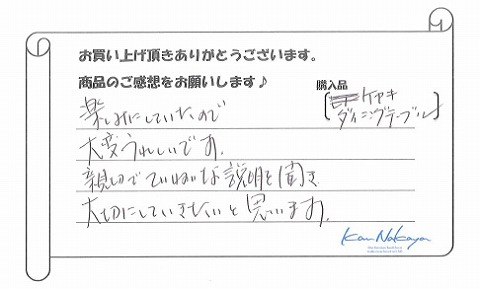 お買い上げ頂きありがとうございます。
商品のご感想をお願いします♪
購入品
ケヤキ
ダイニングテーブル
楽しみにしていたので
大変うれしいです。
親切でていねいな説明を聞き
大切にしていきたいと思います。
Kan Nakaya